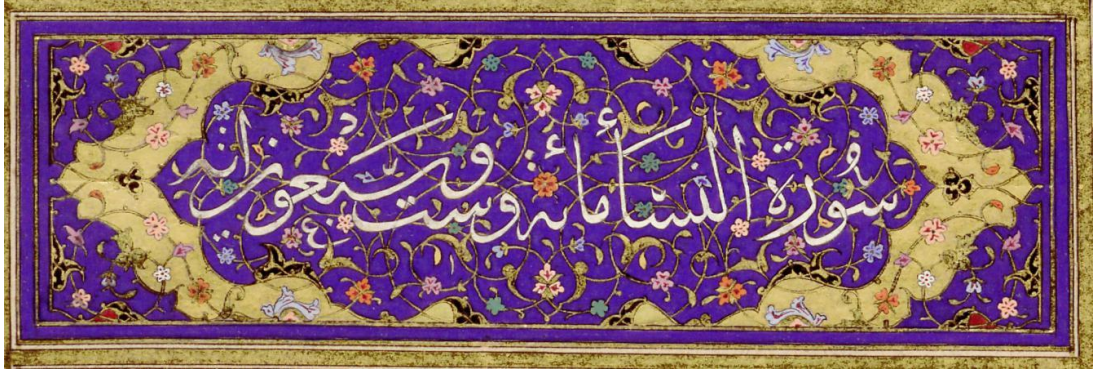 سُورة النسأ مائة وست وسبعون اية